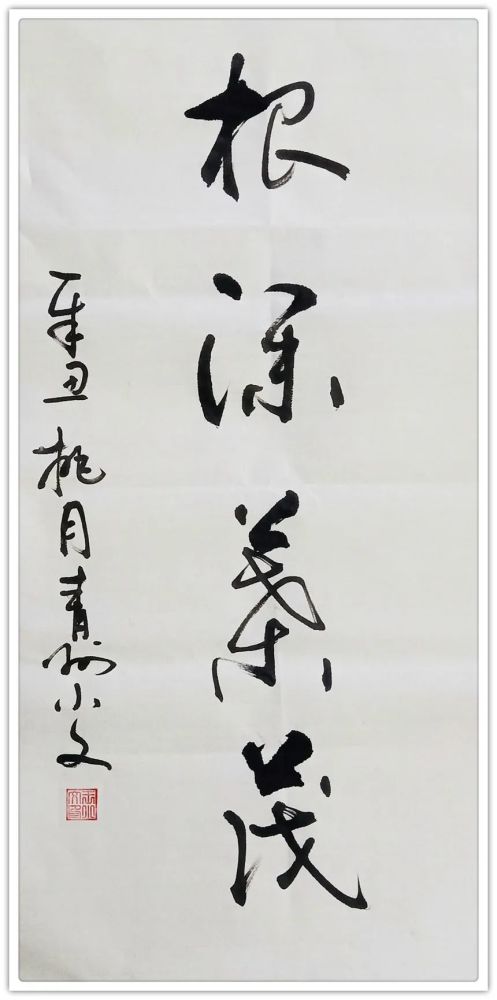 根深葉茂
辛丑桃月青州小文